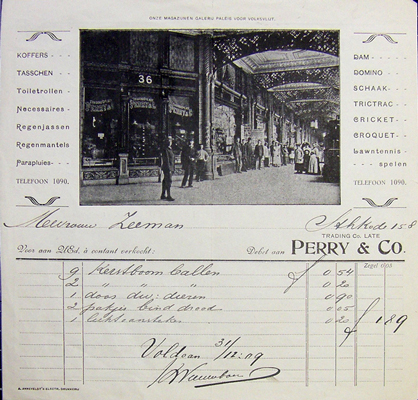 ONZE MAGAZIJNEN GALERIJ PALEIS VOOR VOLKSVLIJT.
KOFFERS
TASSCHEN
Toiletrollen
Necessaires
Regenjassen
Regenmantels
Parapluies
TELEFOON 1090.
36
DAM
DOMINO
SCHAAK
TRICTRAC
CRICKET
CROQUET
Lawntennis-
spelen
TELEFOON 1090.
Mevrouw Zeeman
158
TRADING Co. LATE
Voor aan UEd. à contant verkocht: Debet aan PERRY & Co.
9 Kerstboom ballen 0 54
2 " " " 0 20
1 doos div: dieren 0 90
2 pakjes bind draad 0 05
1 lichtaansteker 0 20 1 89
Voldaan 31/12:09